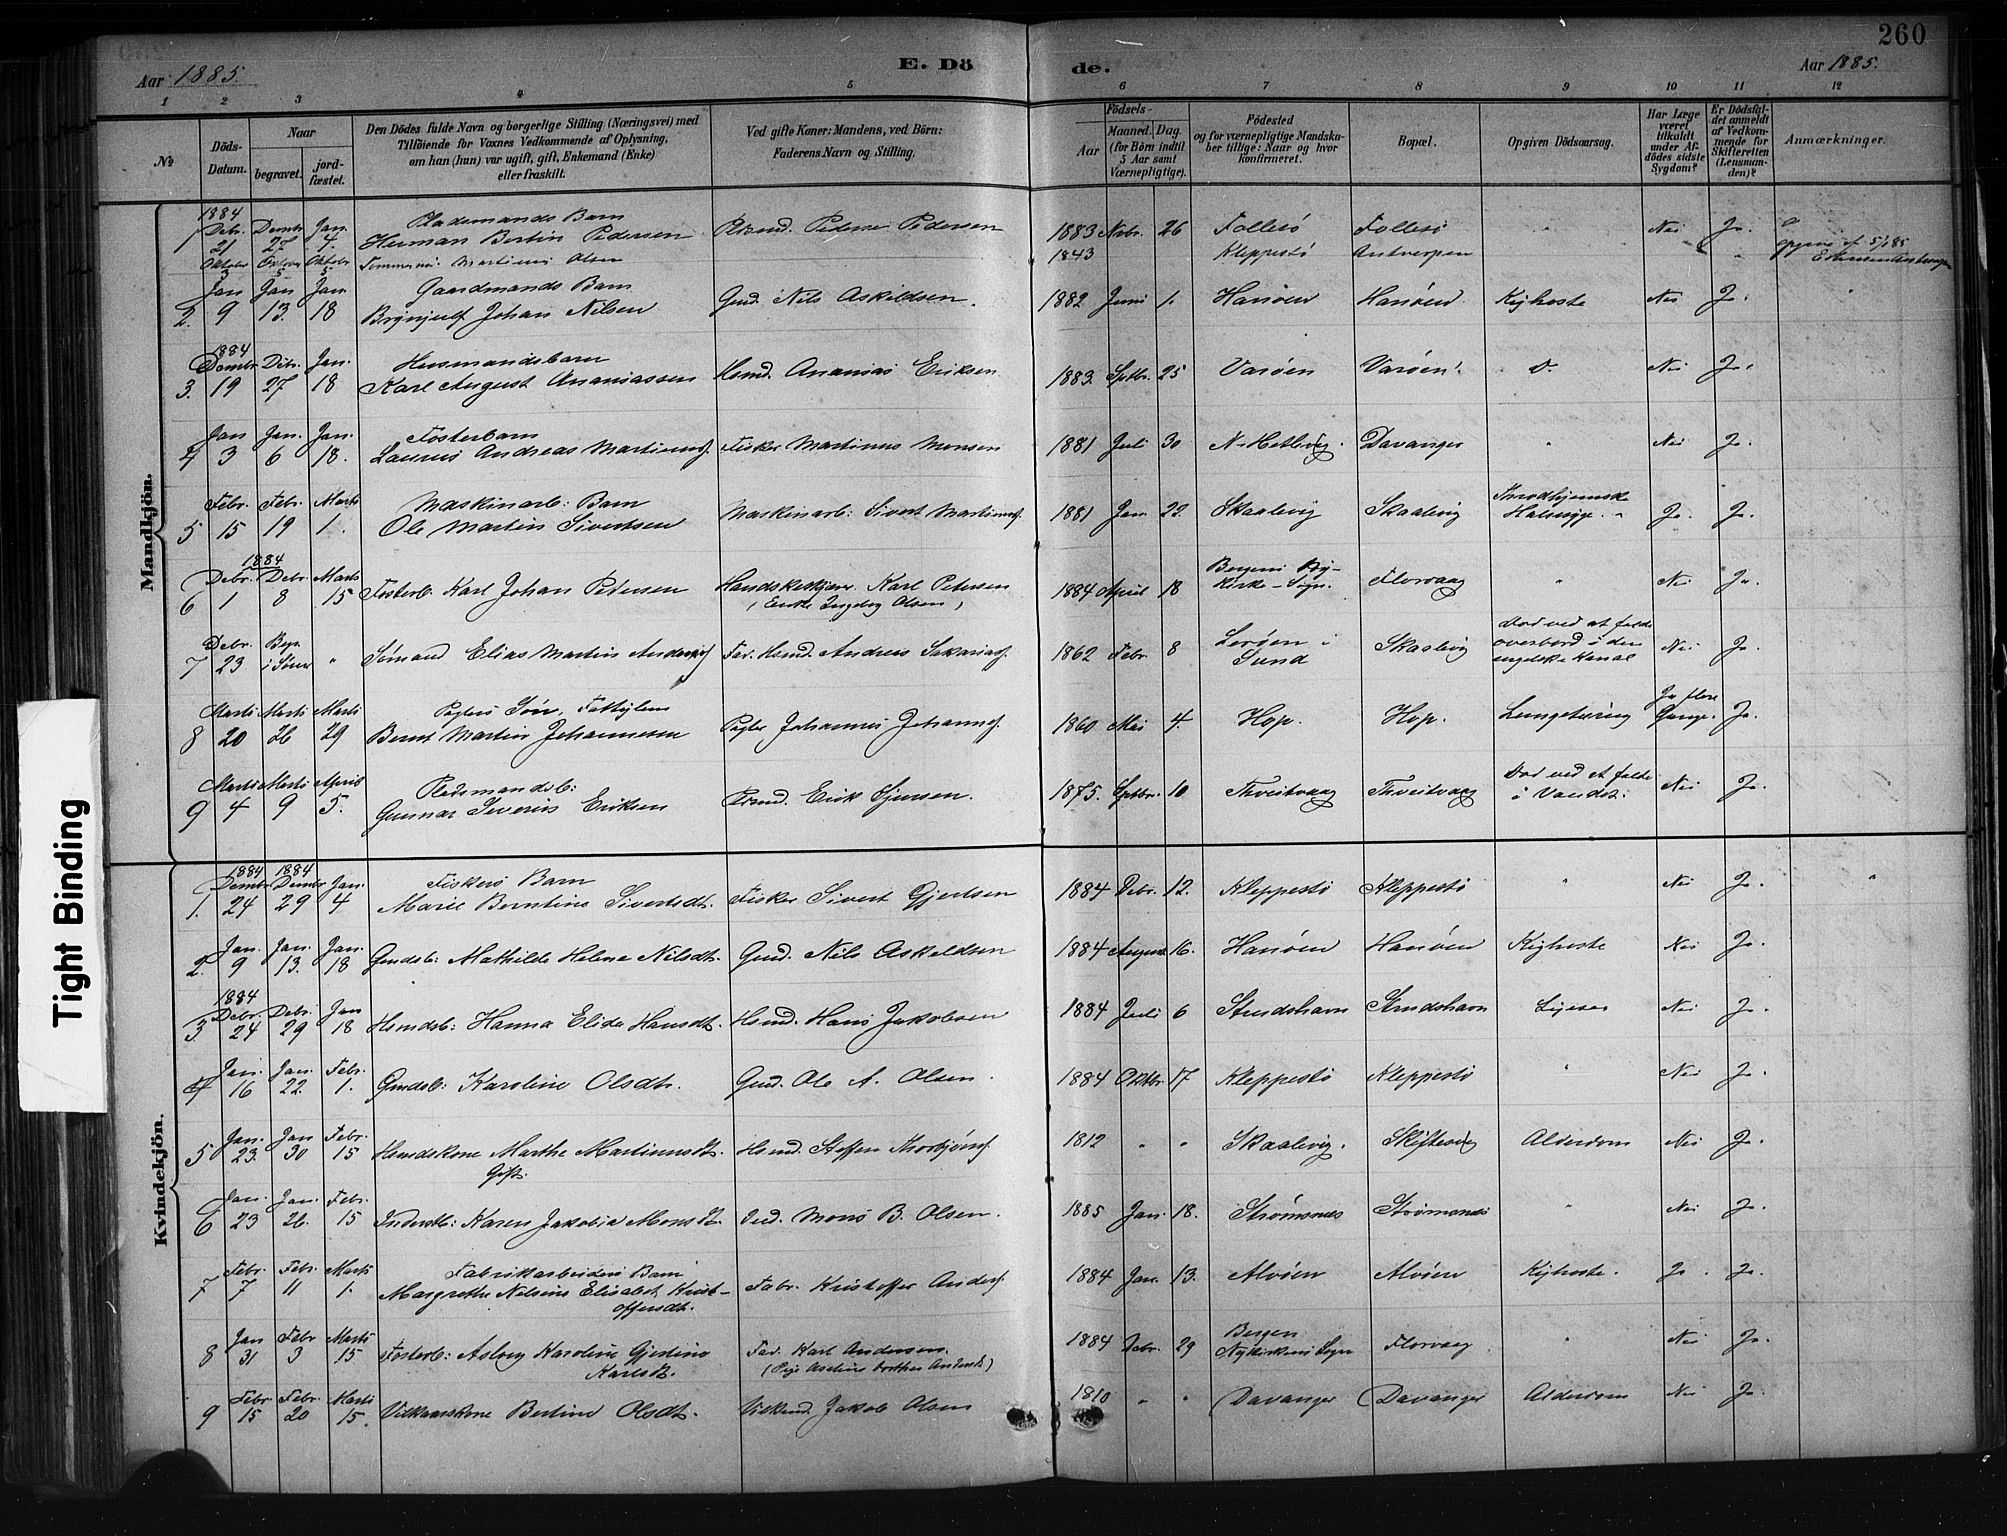 260
Aar 1885.
E. Dö de.
Aar 1885.
1 2 3 4 5 6 7 8 9 10 11 12
No
Döds-Datum.
Naar
begravet.
jord-fæstet.
Den Dödes fulde Navn og borgerlige Stilling (Næringsvei) med
Tilföiende for Voxnes Vedkommende af Oplysning,
om han (hun) var ugift, gift, Enkemand (Enke)
eller fraskilt.
Ved gifte Koner: Mandens, ved Börn:
Faderens Navn og Stilling.
Födsels-
Aar
Maaned. Dag.
(for Börn indtil
5 Aar samt
Værnepligtige).
Födested
og for værnepligtige Mandska-
ber tillige: Naar og hvor
konfirmeret.
Bopæl.
Opgiven Dödsaarsag.
Har Læge
været
tilkaldt
under Af-
dödes sidste
Sygdom?
Er Dödsfal-
det anmeldt
af Vedkom-
mende for
Skifteretten
(Lensman-
den)?
Anmærkninger.
Mandkjön.
1 1884 Debr. 21 Dembr. 27 Jan. 4. Pladsmands Barn
Herman Bertin Pedersen Pedersen 1883 Novbr. 26 Follesö Follesö " Nei Ja.
Oktober 3 Oktober 5 Oktobr 5 Tømmerm. Martinus Olsen 1843 Kleppestö Antverpen "
2. Jan 9 Jan 13. Jan. 18 Gaardmands Barn
Brynjulf Johan Nilsen Gmd. Nils Askildsen. 1882 Juni 1. Hanöen Hanöen Kighoste Nei Ja. "
3. 1884 Dembr 19 Debr. 27 Jan. 18 Husmandsbarn
Karl August Ananiassen Hsmd. Ananias Eriksen 1883. Septbr. 25 Varöen Varöen. D. Nei Ja.
4 Jan 3 Jan. 6 Jan. 18. Fosterbarn
Laurus Andreas Martinusf. Fisker Martinus Monsen 1881 Juli 30 N. Hetlevig. Davanger " Nei Ja.
5 Febr. 15 Febr. 19 Marts 1. Maskinarb: Barn
Ole Martin Sivertsen Maskinarb: Sivert Martinusf. 1881 Jan 22. Skaalevig Skaalevig Halssyge. Ja. Ja.
6 1884 Debr. 1 Debr. 8 Marts 15 Fosterb. Karl Johan Petersen Karl Petersen
(Enke Ingeborg Olsen) 1884 April 18 Bergens
Kirke-Sogn. Florvaag " Nei Ja.
7 Debr. 23 i Söen " Sömand Elias Martin Andersf. Far. Hsmd. Andreas Sakariasf. 1862 Febr. 8 Leröen i
Sund Skaalevig Död ved at falde
overbord i den
engelske Kanal Nei Ja.
8 Marts 20 Marts 26 Marts 29 Pagters Sön, Fattiglem
Bernt Martin Johannesen Pagter Johannes Johannesf. 1860 Mai 4. Hop. Hop. Lungetæring Ja flere
Gange. Ja.
9 Marts 4 Marts 9 April 5. Pladsmandsb:
Gunnar Severin Eriksen Erik Sjursen. 1875. Septbr. 10 Thveitvaag Thveitvaag Död ved at falde
i Vandet. Nei Ja.
Kvindekjön.
1. 1884 Dembr 24 1884 Dembr 29 Jan. 4 Fiskers Barn
Marie Berntine Sivertsdt. Fisker Sivert Gjertsen 1884 Debr. 12. Kleppestö Kleppestö " Nei Ja. "
2. Jan. 9 Jan. 13. Jan. 18 Gmdsb: Mathilde Helene Nilsdt. Gmd. Nils Askeldsen 1884 August 16. Hanöen Hanöen Kighoste Nei Ja.
3 1884 Debr. 24 Debr. 29 Jan 18 Hsmdsb: Hanna Elide Hansdt. Hsmd. Hans Jakobsen 1884 Juli 6 Strudshavn Strudshavn Nei Ja.
4 Jan. 16 Jan. 22. Febr. 1. Gmdsb: Karoline Olsdtr. Gmd. Ole A. Olsen. 1884 Oktbr. 17 Kleppestö Kleppestö " Nei Ja.
5 Jan. 23. Jan 30 Febr. 15 Hsmdskone Marthe Martinusdt.
Gift. Hsmd. Steffen Thorbjörnsf. 1812 " " Skaalevig. Skiftesvig Alderdom Nei Ja.
6 Jan. 23 Jan. 26. Febr. 15 Inderstb: Karen Jakobia Monsdt. Ind. Mons B. Olsen. 1885 Jan. 18. Strömsnes Strömsnes " Nei Ja.
7 Febr. 7 Febr. 11 Marts 1. Fabrikarbeiders Barn
Margrethe Nilsine Elisabet Krist-
offersdt. Fabr. Kristoffer Andersf. 1884 Jan. 13. Alvöen Alvöen Kighoste. Ja. Ja.
8 Jan 31 Febr 3 Marts 15 Fosterb: Aslaug Karoline Gjertine
Karlsdt. Far. Karl Andersen. 1884 Debr. 29 Bergen
Nykirkens Sogn Florvaag " Nei Ja.
9 Febr. 15 Febr. 20 Marts 15. Vilkaarskone Bertine Olsdt. Vilkmd. Jakob Olsen 1810 " " Davanger Davanger Alderdom Nei Ja.
Tight Binding